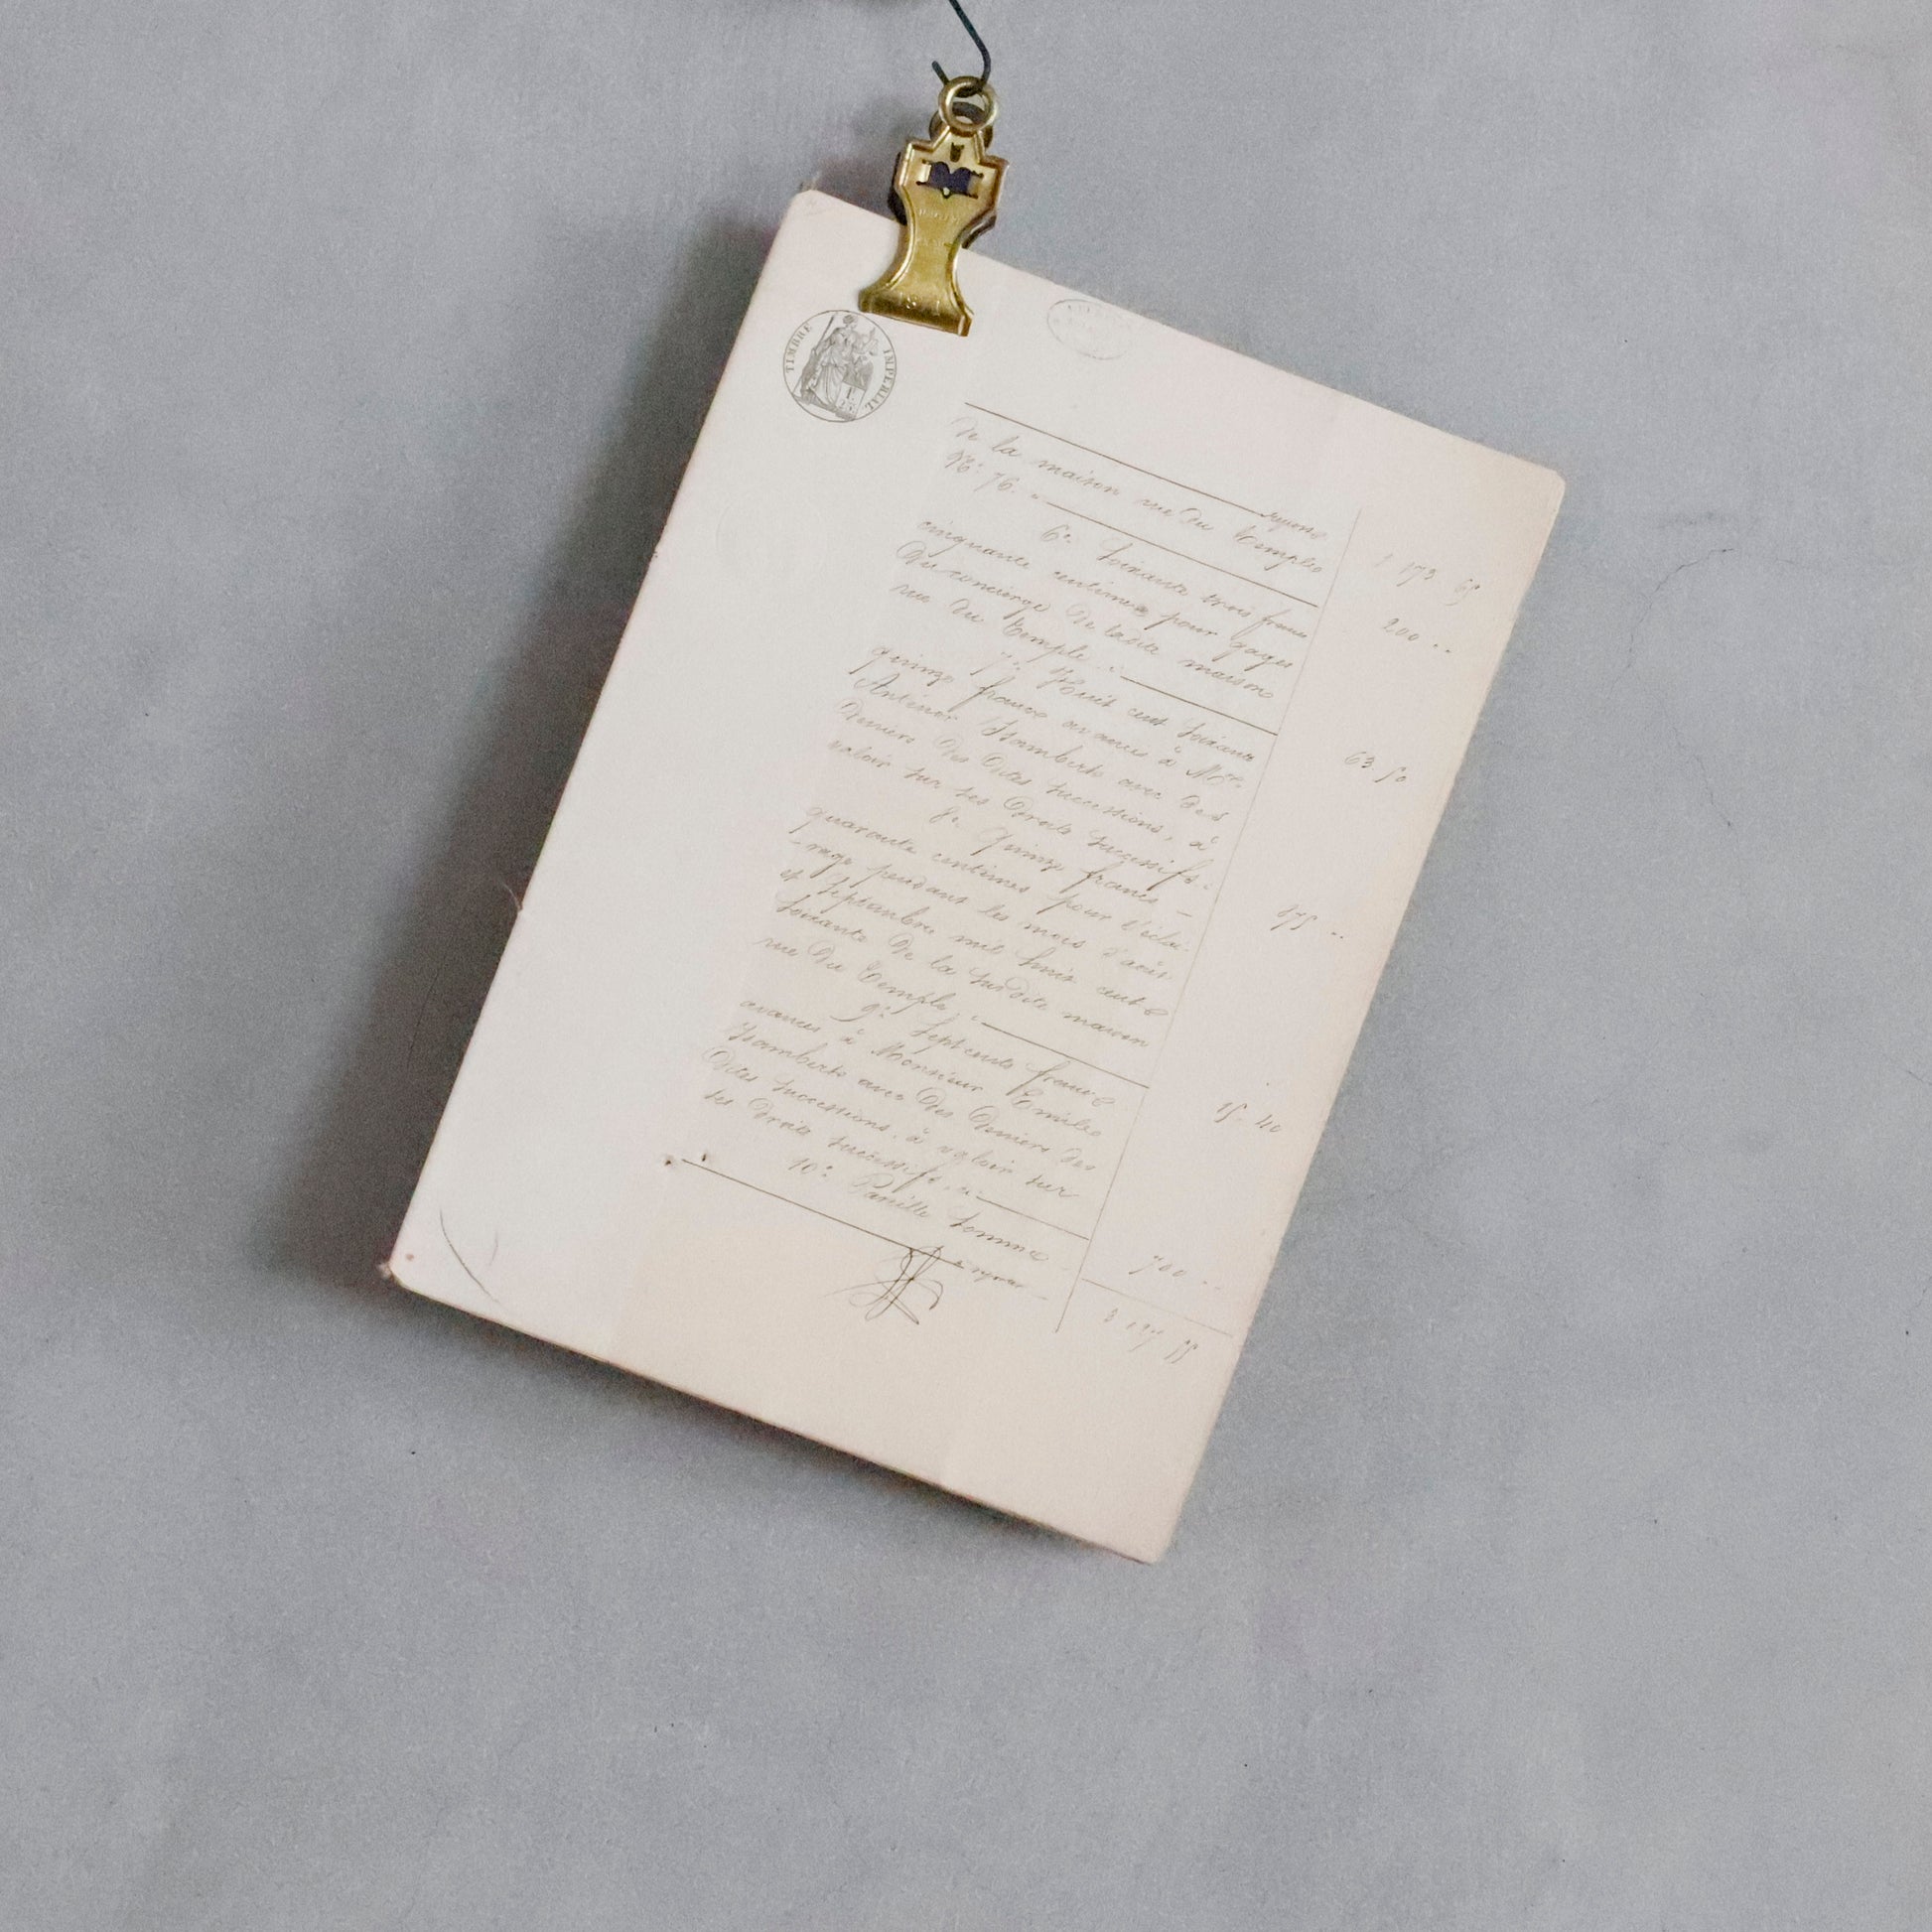 TIMBRE IMPERIAL
report
1 173 65
de la maison rue du Temple
N° 76.
200 ..
6° Soixante trois francs
cinquante centimes pour gages
du concierge de ladite maison
rue du Temple
63 50
7° Huit cent soixante
quinze francs avancés à Mr.
Anténor Isambert avec des
deniers des dites successions, à
valoir sur ses droits successifs
875 ..
8° Quinze francs
quarante centimes pour l'éclai-
-rage pendant les mois d'août
et Septembre mil huit cent
soixante de la susdite maison
rue du Temple
15. 40
9° Sept cents francs
avancés à Monsieur Emile
Isambert avec des deniers des
dites successions à valoir sur
ses droits successifs
700 ..
10° Pareille somme
à reporter
55